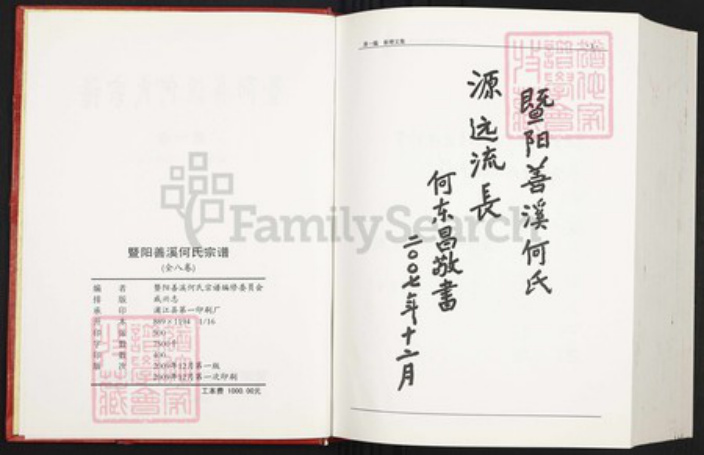 暨阳善溪何氏宗谱
(全八卷)
编 者 暨阳善溪何氏宗谱编修委员会
排 版 成兴志
承 印 浦江县第一印刷厂
开 本 889×1194 1/16
印 张 500
字 数 7500千
印 数 400
版 次 2009年12月第一版
2009年12月第一次印刷
工本费 1000.00元
暨阳善溪何氏
源远流長
何东昌敬書
二〇〇七年十二月
FamilySearch